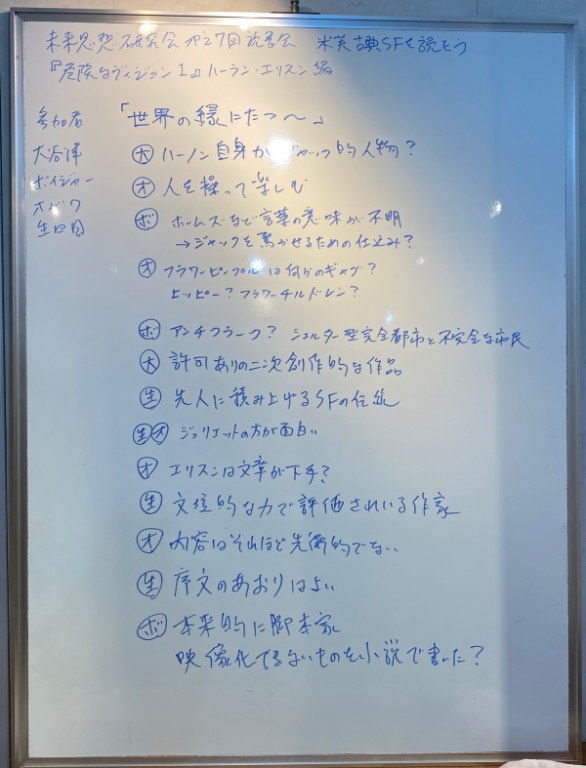 未来思想研究会 第27回読書会 米英古典SFを読もう
『危険なヴィジョン1』ハーラン・エリスン編
参加者
大谷津
ボイジャー
オガワ
生田目
「世界の縁にたつ〜」
大 ハーラン自身がジャック的人物?
オ 人を操って楽しむ
ボ ホームズなど言葉の意味が不明
→ジャックを驚かせるための仕込み?
オ フラワーピープルは何かのギャグ?
ヒッピー?フラワーチルドレン?
ボ アンチフラーク? シェルター型完全都市と不完全な市民
大 許可ありの二次創作的な作品
生 先人に積み上げるSFの伝統
生オ ジュリエットの方が面白い
オ エリスンは文章が下手?
生 文壇的な力で評価されている作家
オ 内容はそれほど先衛的でない
生 序文のあおりはよい
ボ 本来的に脚本家
映像化できないものを小説で書いた?